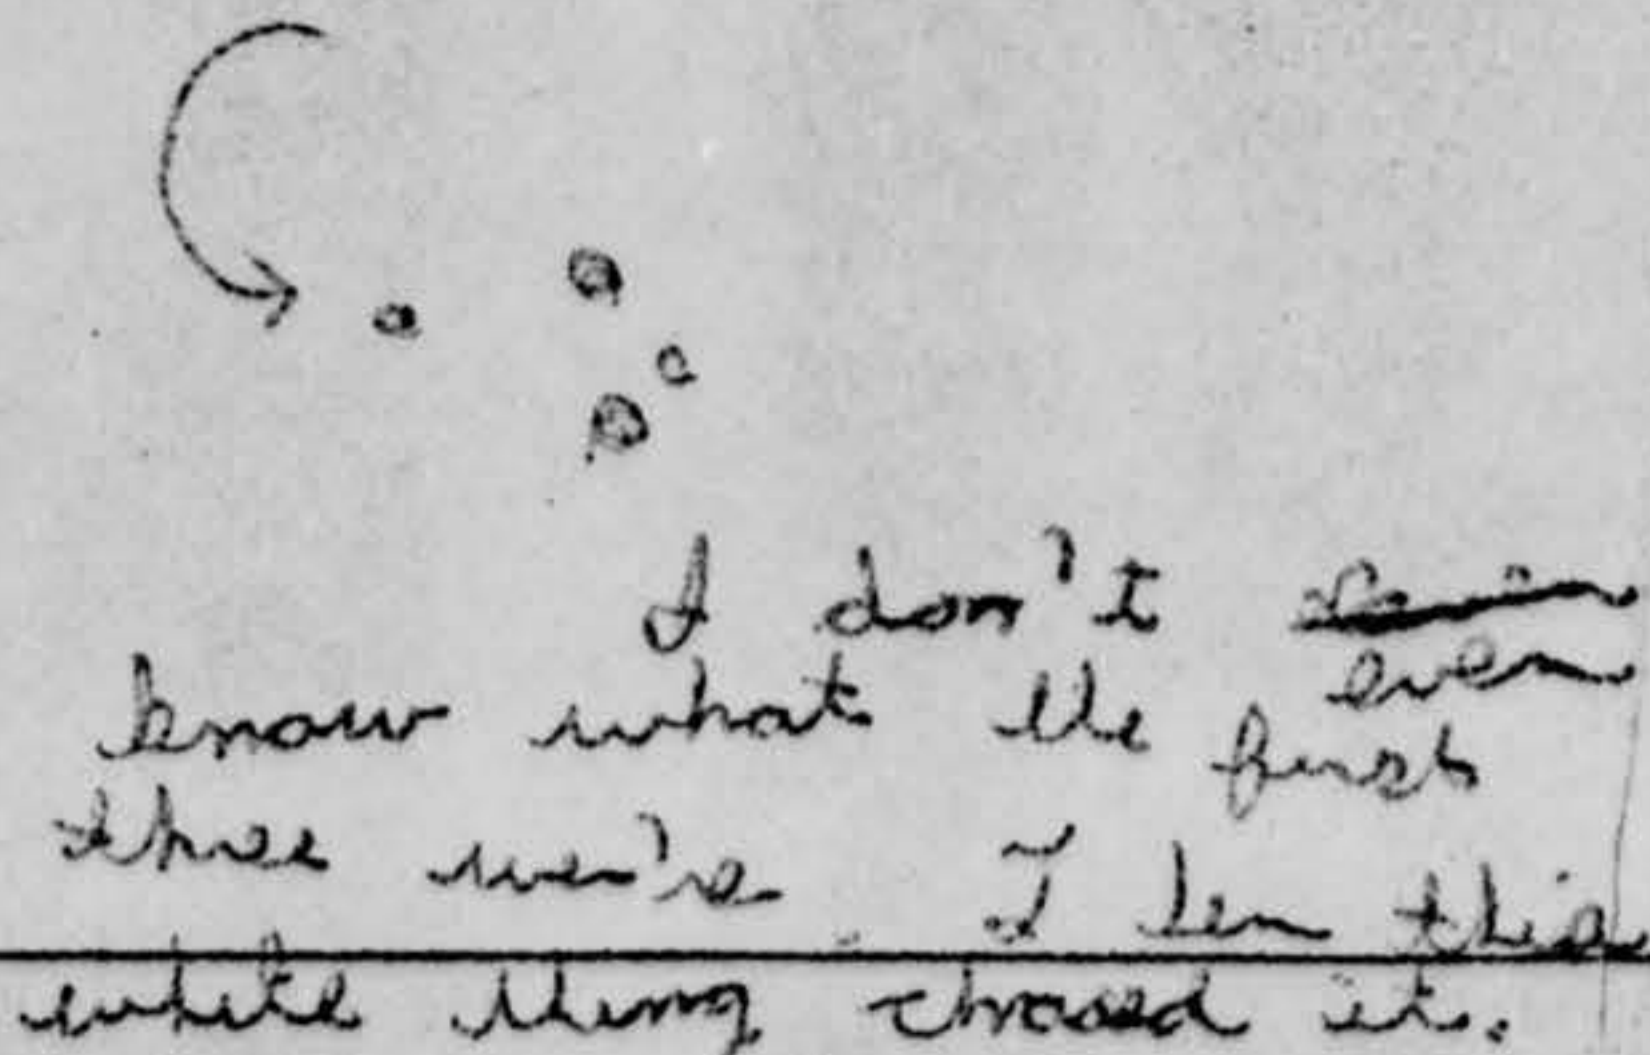 I don't
even
know what the first
three wer'e. I this
white thing chased it.